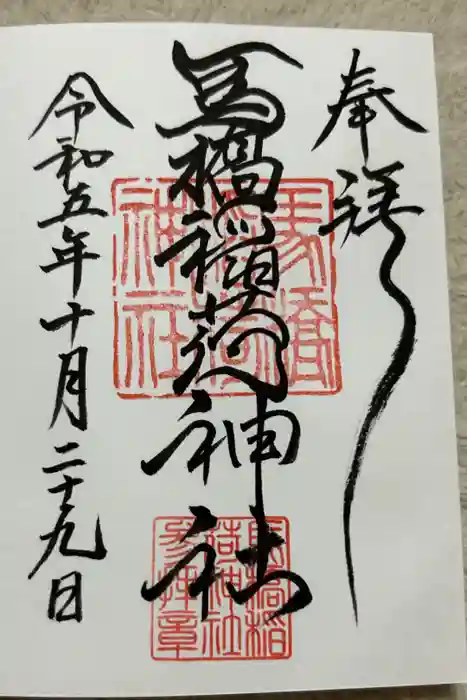 奉拝
馬橋稲荷神社
令和五年十月二十九日
馬橋稲荷神社
馬橋稲荷神社参拝章